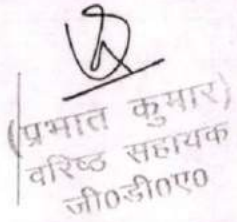 (प्रभात कुमार)
वरिष्ठ सहायक
जी०डी०ए०